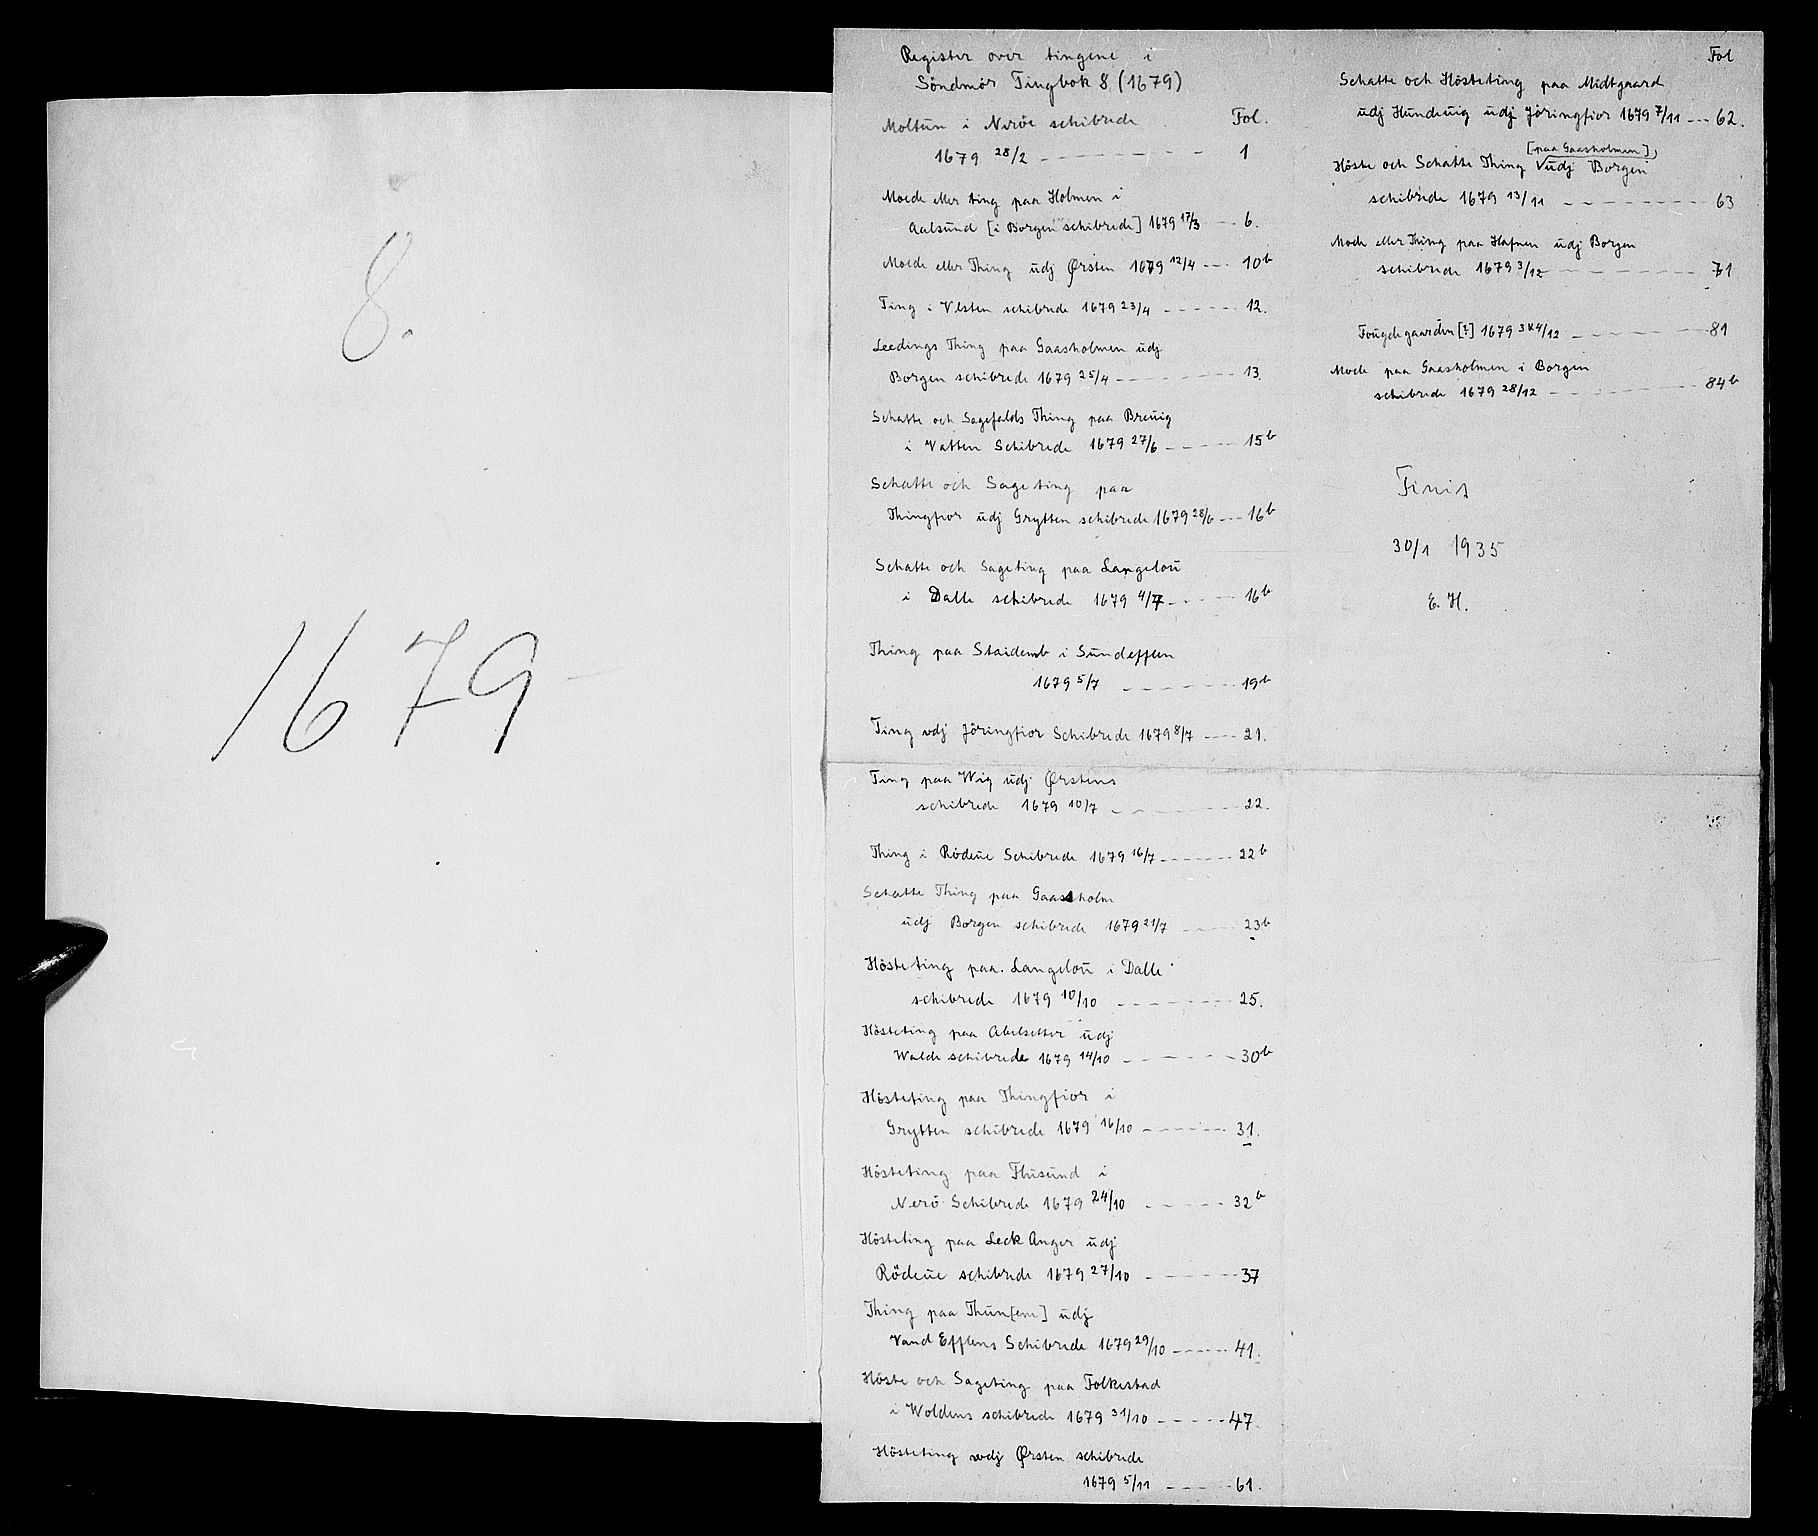 8.
1679
Register over tingene i
Söndmör Tingbok 8 (1679)
Fol.
Moltun i Neröe schibrede
1679 28/2 - - - - - - - - 1
Moede eller ting paa Holmen i
Aalsund [i Borgen schibrede] 1679 17/3 - - 6.
Moede eller Thing udj Ørsten 1679 12/4 - - - 10b
Ting i Vlsten schibrede 1679 23/4 - - - - - - 12.
Leedings Thing paa Gaasholmen udj
Borgen schibrede 1679 25/4 - - - - - - - 13.
Schatte och Sagefalds Thing paa Breuig
i Vatten Schibrede 1679 27/6 - - - - - - 15b
Schatte och Sageting paa
Thingfior udj Grytten schibrede 1679 28/6 - - - 16b
Schatte och Sageting paa Langelou
i Dalle schibrede 1679 4/7 - - - - 16b
Thing paa Staidemb i Sundefflen
1679 5/7 - - - - - - 19b
Ting vdj Jöringfior Schibrede 1679 8/7 - - - - 21.
Ting paa Wig udj Ørstens
schibrede 1679 10/7 - - - - - - 22.
Thing i Rödeue Schibrede 1679 16/7 - - - - - - 22b
Schatte Thing paa Gaasholm
udj Borgen schibrede 1679 21/7 - - - - 23b
Hösteting paa Langelou i Dalle
schibrede 1679 10/10 - - - - - - - 25.
Hösteting paa Abelsetter udj
Walde schibrede 1679 14/10 - - - - - - 30b
Hösteting paa Thingfior i
Grytten schibrede 1679 16/10 - - - - - - 31.
Hösteting paa Flusund i
Nerö Schibrede 1679 24/10 - - - - - 32b
Hösteting paa Leck Anger udj
Rödeue schibrede 1679 27/10 - - - - - - 37
Thing paa Thun[em] udj
Vand Efflens Schibrede 1679 29/10 - - - - - 41.
Höste och Sageting paa Folkestad
i Woldens schibrede 1679 31/10 - - - - - 47.
Hösteting vdj Ørsten schibrede
1679 5/11 - - - - - 61.
Fol
Schatte och Hösteting paa Midtgaard
udj Hundeuig udj Jöringfior 1679 7/11 - - - 62.
[paa Gaasholmen],
Höste och Schatte Thing √udj Borgen
schibrede 1679 13/11 - - - - - - - - 63
Mode eller Thing paa Hafnen udj Borgen
schibrede 1679 3/12 - - - - - - - - 71
Fougdegaarden [?] 1679 3&4/12 - - - - - - - 81
Mode paa Gaasholmen i Borgen
schibrede 1679 28/12 - - - - - - - - 84b
Finis
30/1 1935
E. H.